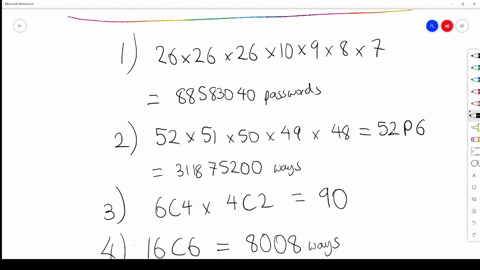 Microsoft Whiteboard
1) 26 × 26 × 26 × 10 × 9 × 8 × 7
= 88583040 passwords
2) 52 × 51 × 50 × 49 × 48 = 52P6
= 311875200 ways
3) 6C4 × 4C2 = 90
4) 16C6 = 8008 ways